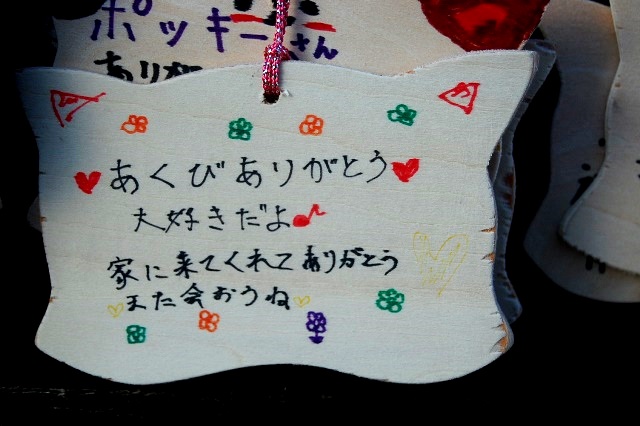 ポッキーさん
あり
あくびありがとう
大好きだよ♪
家に来てくれてありがとう
また会おうね